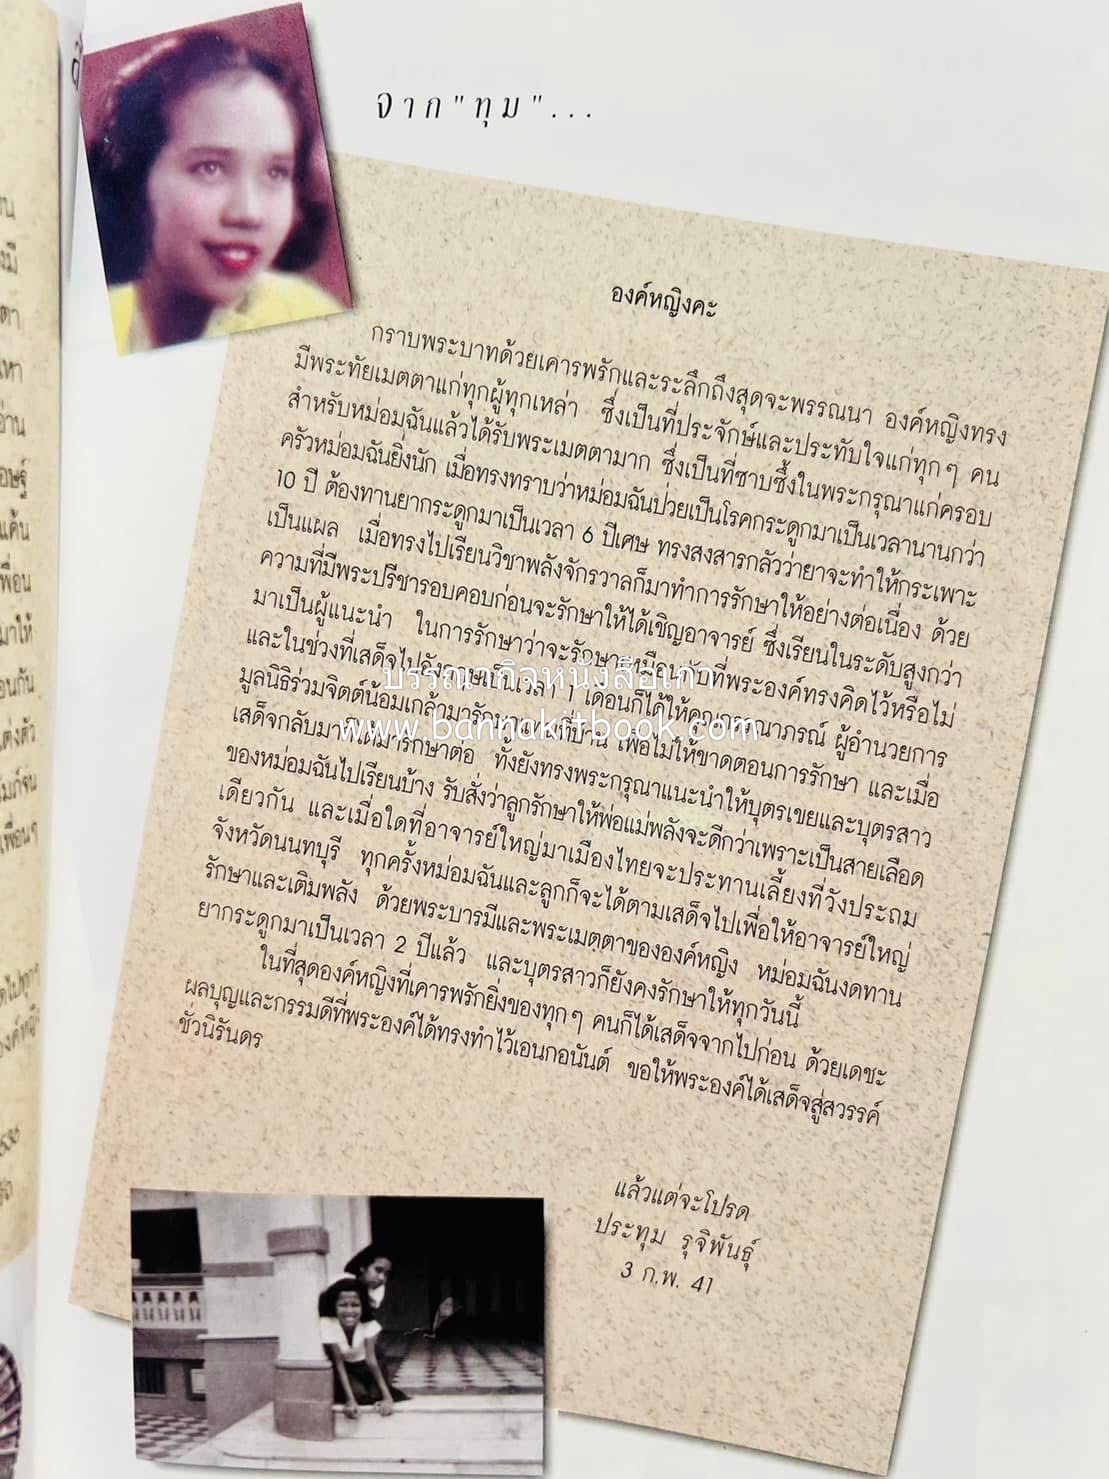 จาก"ทุม"...
องค์หญิงคะ
กราบพระบาทด้วยเคารพรักและระลึกถึงสุดจะพรรณนา องค์หญิงทรง
มีพระทัยเมตตาแก่ทุกผู้ทุกเหล่า ซึ่งเป็นที่ประจักษ์และประทับใจแก่ทุกๆ คน
สำหรับหม่อมฉันแล้วได้รับพระเมตตามาก ซึ่งเป็นที่ซาบซึ้งในพระกรุณาแก่ครอบ
ครัวหม่อมฉันยิ่งนัก เมื่อทรงทราบว่าหม่อมฉันป่วยเป็นโรคกระดูกมาเป็นเวลานานกว่า
10 ปี ต้องทานยากระดูกมาเป็นเวลา 6 ปีเศษ ทรงสงสารกลัวว่ายาจะทำให้กระเพาะ
เป็นแผล เมื่อทรงไปเรียนวิชาพลังจักรวาลก็มาทำการรักษาให้อย่างต่อเนื่อง ด้วย
ความที่มีพระปรีชารอบคอบก่อนจะรักษาให้ได้เชิญอาจารย์ ซึ่งเรียนในระดับสูงกว่า
มาเป็นผู้แนะนำ ในการรักษาว่าจะรักษาเหมือนกับที่พระองค์ทรงคิดไว้หรือไม่
และในช่วงที่เสด็จไปอังกฤษเป็นเวลา 1 เดือนก็ได้ให้ ผู้อำนวยการ
มูลนิธิร่วมจิตต์น้อมเกล้ามารักษา ที่บ้าน เพื่อไม่ให้ขาดตอนการรักษา และเมื่อ
เสด็จกลับมาก็ให้มารักษาต่อ ทั้งยังทรงพระกรุณาแนะนำให้บุตรเขยและบุตรสาว
ของหม่อมฉันไปเรียนบ้าง รับสั่งว่าลูกรักษาให้พ่อแม่พลังจะดีกว่าเพราะเป็นสายเลือด
เดียวกัน และเมื่อใดที่อาจารย์ใหญ่มาเมืองไทยจะประทานเลี้ยงที่วังประถม
จังหวัดนนทบุรี ทุกครั้งหม่อมฉันและลูกก็จะได้ตามเสด็จไปเพื่อให้อาจารย์ใหญ่
รักษาและเติมพลัง ด้วยพระบารมีและพระเมตตาขององค์หญิง หม่อมฉันงดทาน
ยากระดูกมาเป็นเวลา 2 ปีแล้ว และบุตรสาวก็ยังคงรักษาให้ทุกวันนี้
ในที่สุดองค์หญิงที่เคารพรักยิ่งของทุกๆ คนก็ได้เสด็จจากไปก่อน ด้วยเดชะ
ผลบุญและกรรมดีที่พระองค์ได้ทรงทำไว้เอนกอนันต์ ขอให้พระองค์ได้เสด็จสู่สวรรค์
ชั่วนิรันดร
แล้วแต่จะโปรด
ประทุม รุจิพันธุ์
3 ก.พ. 41
บรรณากิจหนังสือเก่า
www.bannakitbook.com